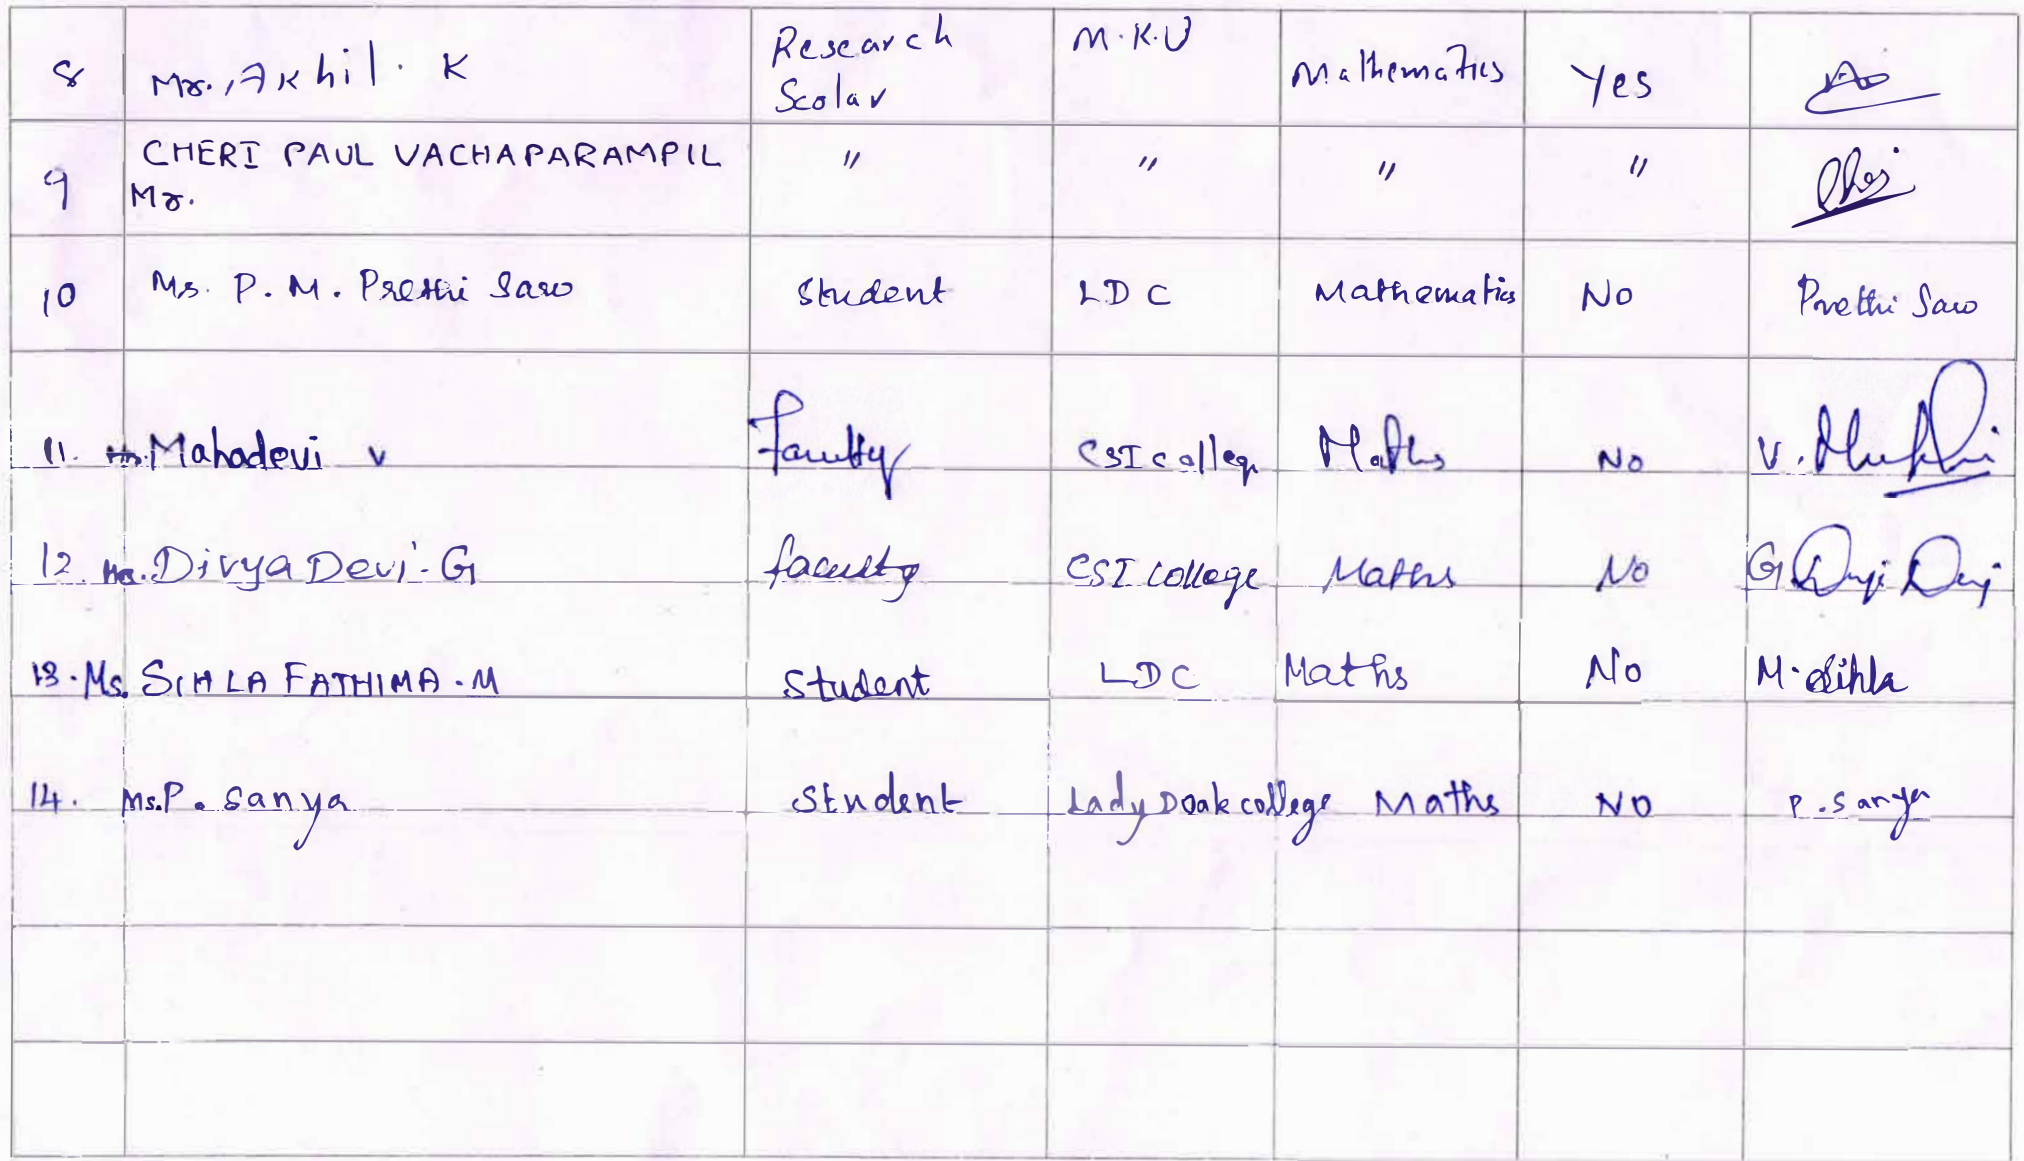 8 Mr. Akhil. K Research Scolar M.K.U Mathematics Yes
9 CHERI PAUL VACHAPARAMPIL Mr. " " " "
10 Ms. P. M. Prethi Saro Student LDC Mathematics No Prethi Saro
11. Mahadevi V Faculty CSI college Maths No V.
12. Ms. Divya Devi. G faculty CSI college Maths No G
13. Ms. SIHLA FATHIMA. M Student LDC Maths No M. Sihla
14. Ms. P. Sanya Student Lady Doak college Maths No P. Sanya